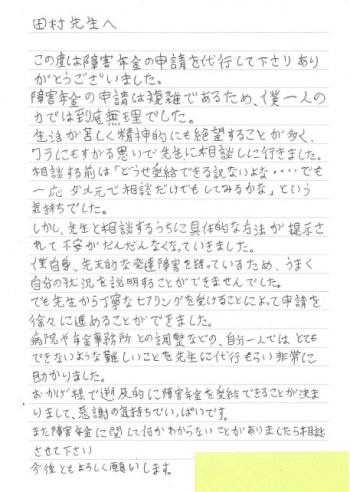 田村先生へ
この度は障害年金の申請を代行して下さりあり
がとうございました。
障害年金の申請は複雑であるため、僕一人の
力では到底無理でした。
生活が苦しく精神的にも絶望することが多く、
ワラにもすがる思いで先生に相談しに行きました。
相談する前は「どうせ受給できる訳ないよな・・・・でも
一応ダメ元で相談だけでもしてみるかな」という
気持ちでした。
しかし、先生と相談するうちに具体的な方法が提示さ
れて不安がだんだんなくなっていきました。
僕自身、先天的な発達障害を持っているため、うまく
自分の状況を説明することができませんでした。
でも先生から丁寧なヒアリングを受けることによって申請を
徐々に進めることができました。
病院や年金事務所との調整などの、自分一人では、とても
できないような難しいことを先生に代行もらい非常に
助かりました。
おかげ様で遡及的に障害年金を受給できることが決ま
りまして、感謝の気持ちでいっぱいです。
また障害年金に関して何かわからないことがありましたら相談
させて下さい
今後ともよろしく願いします。